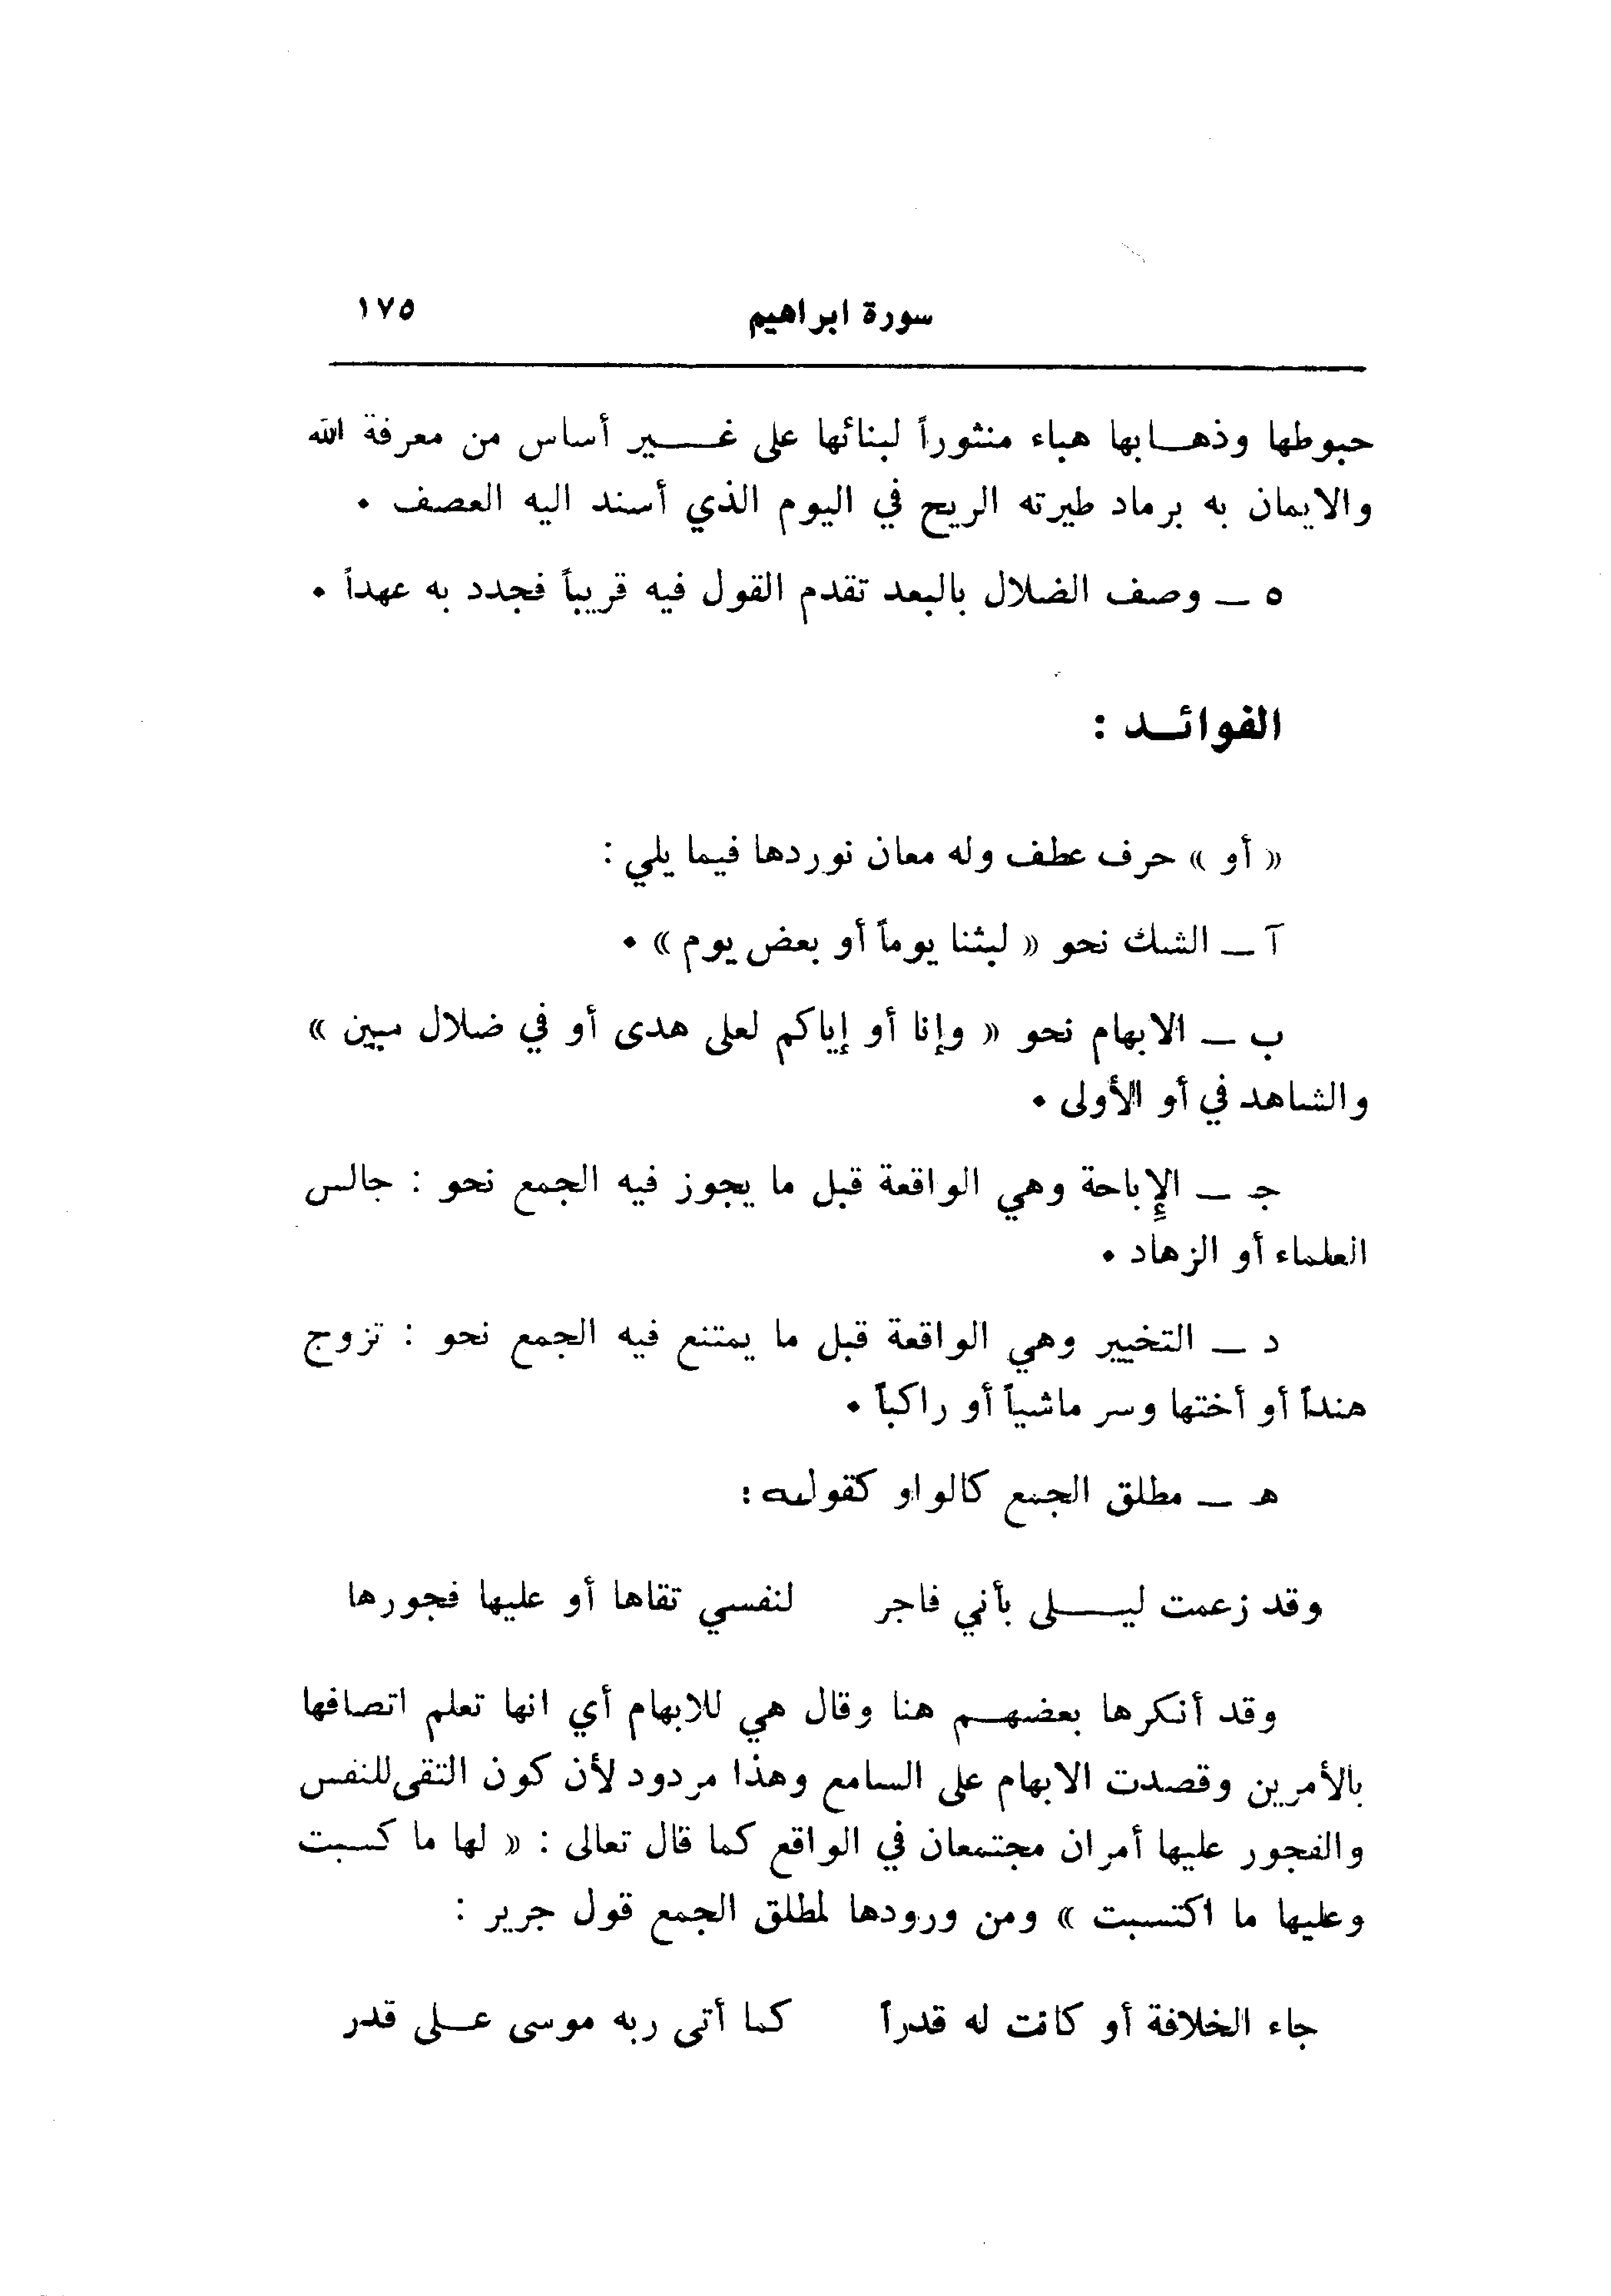 سورة ابراهيم ١٧٥
حبوطها وذهـــابها هباء منثوراً لبنائها على غـــير أساس من معرفة الله
والايمان به برماد طيرته الريح في اليوم الذي أسند اليه العصف .
٥ ــ وصف الضلال بالبعد تقدم القول فيه قريباً فجدد به عهداً .
الفوائــد :
« أو » حرف عطف وله معان نوردها فيما يلي :
آ ــ الشك نحو « لبثنا يوماً أو بعض يوم » .
ب ــ الابهام نحو « وإنا أو إياكم لعلى هدى أو في ضلال مبين »
والشاهد في أو الأولى .
جـ ــ الإباحة وهي الواقعة قبل ما يجوز فيه الجمع نحو : جالس
العلماء أو الزهاد .
د ــ التخيير وهي الواقعة قبل ما يمتنع فيه الجمع نحو : تزوج
هنداً أو أختها وسر ماشياً أو راكباً .
هـ ــ مطلق الجمع كالواو كقوله :
وقد زعمت ليـــلى بأني فاجر لنفسي تقاها أو عليها فجورها
وقد أنكرها بعضهــم هنا وقال هي للابهام أي انها تعلم اتصافها
بالأمرين وقصدت الابهام على السامع وهذا مردود لأن كون التقى للنفس
والفجور عليها أمران مجتمعان في الواقع كما قال تعالى : « لها ما كسبت
وعليها ما اكتسبت » ومن ورودها لمطلق الجمع قول جرير :
جاء الخلافة أو كانت له قدراً كما أتى ربه موسى عــلى قدر